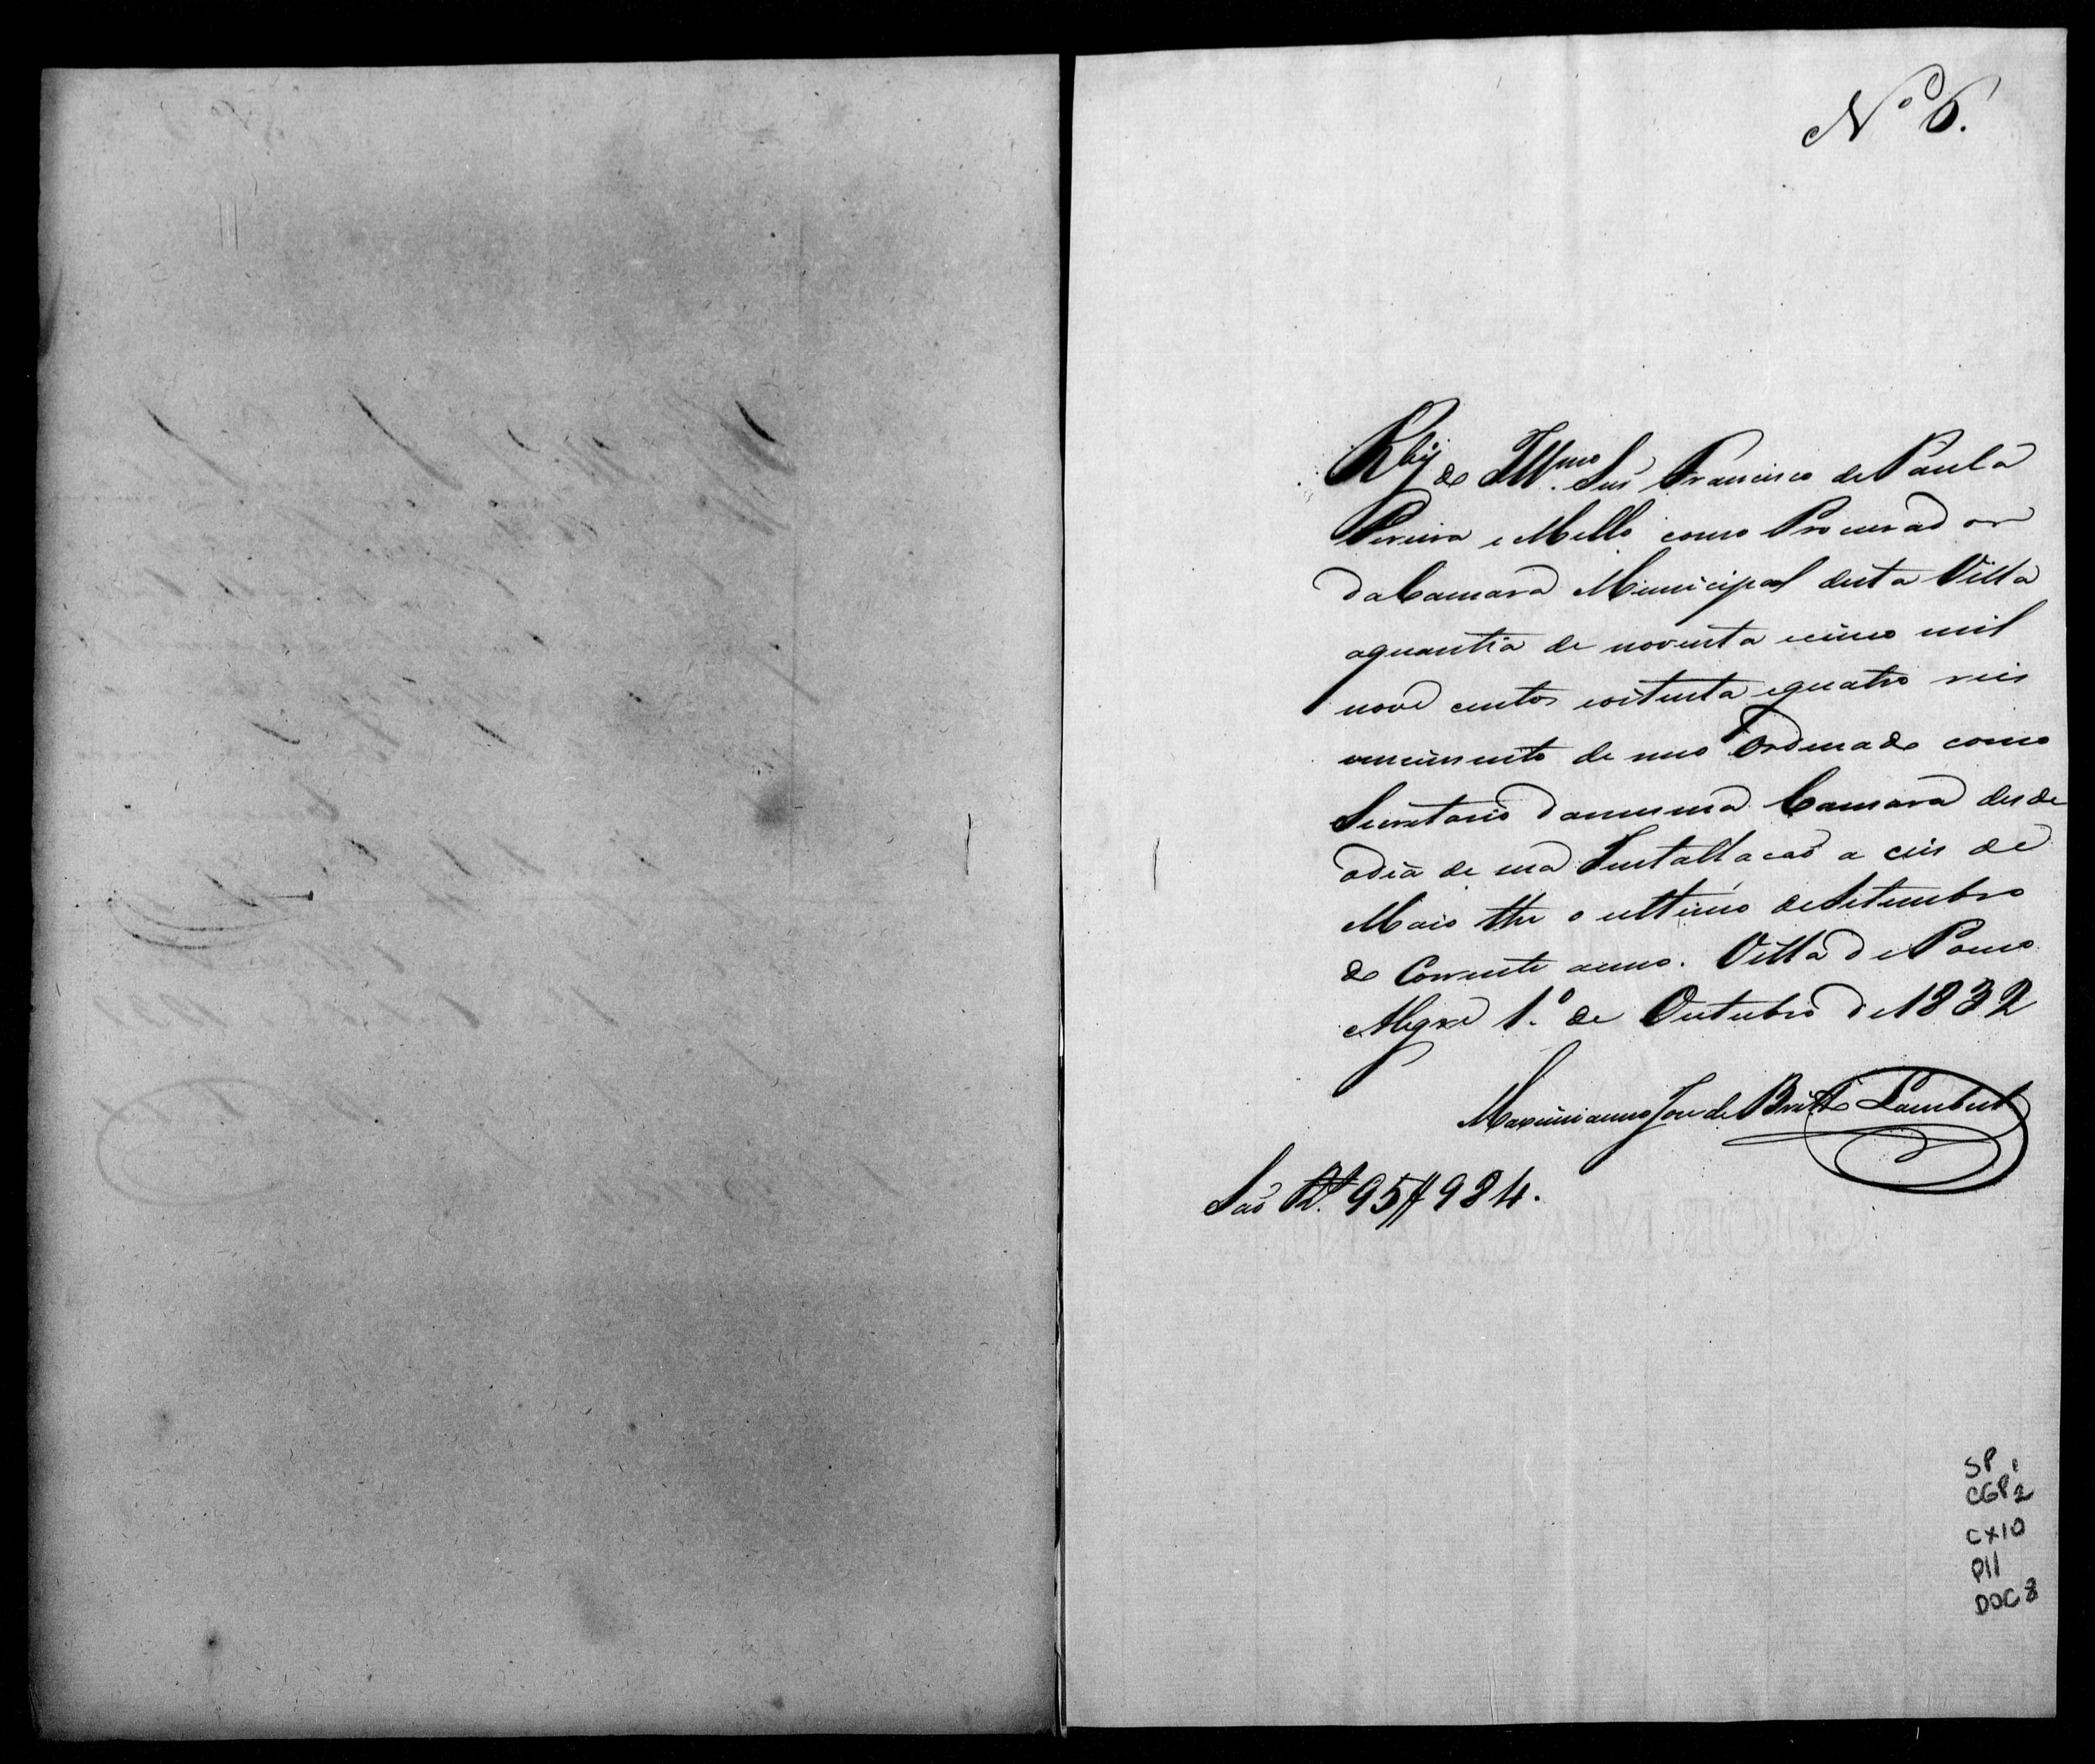 Nº 6.
Rbi do Illmo. Snr Francisco de Paula
Pereira e Mello como Procurador
da Camara Municipal desta Villa
aquantia de noventa ecinco mil
nove centos eoitenta equatro reis
vencimento de meo Ordenado como
Secretario damesma Camara desde
odia de sua Installacaõ a seis de
Maio the o ultimo deSetembro
do Corrente anno. Villa de Pouso
Alegre 1.º de Outubro de 1832
Maximianno Jose de Britto Lambert
Saõ Rs. 95$984.
SP 1
CGP 2
CX10
P11
DOC 8